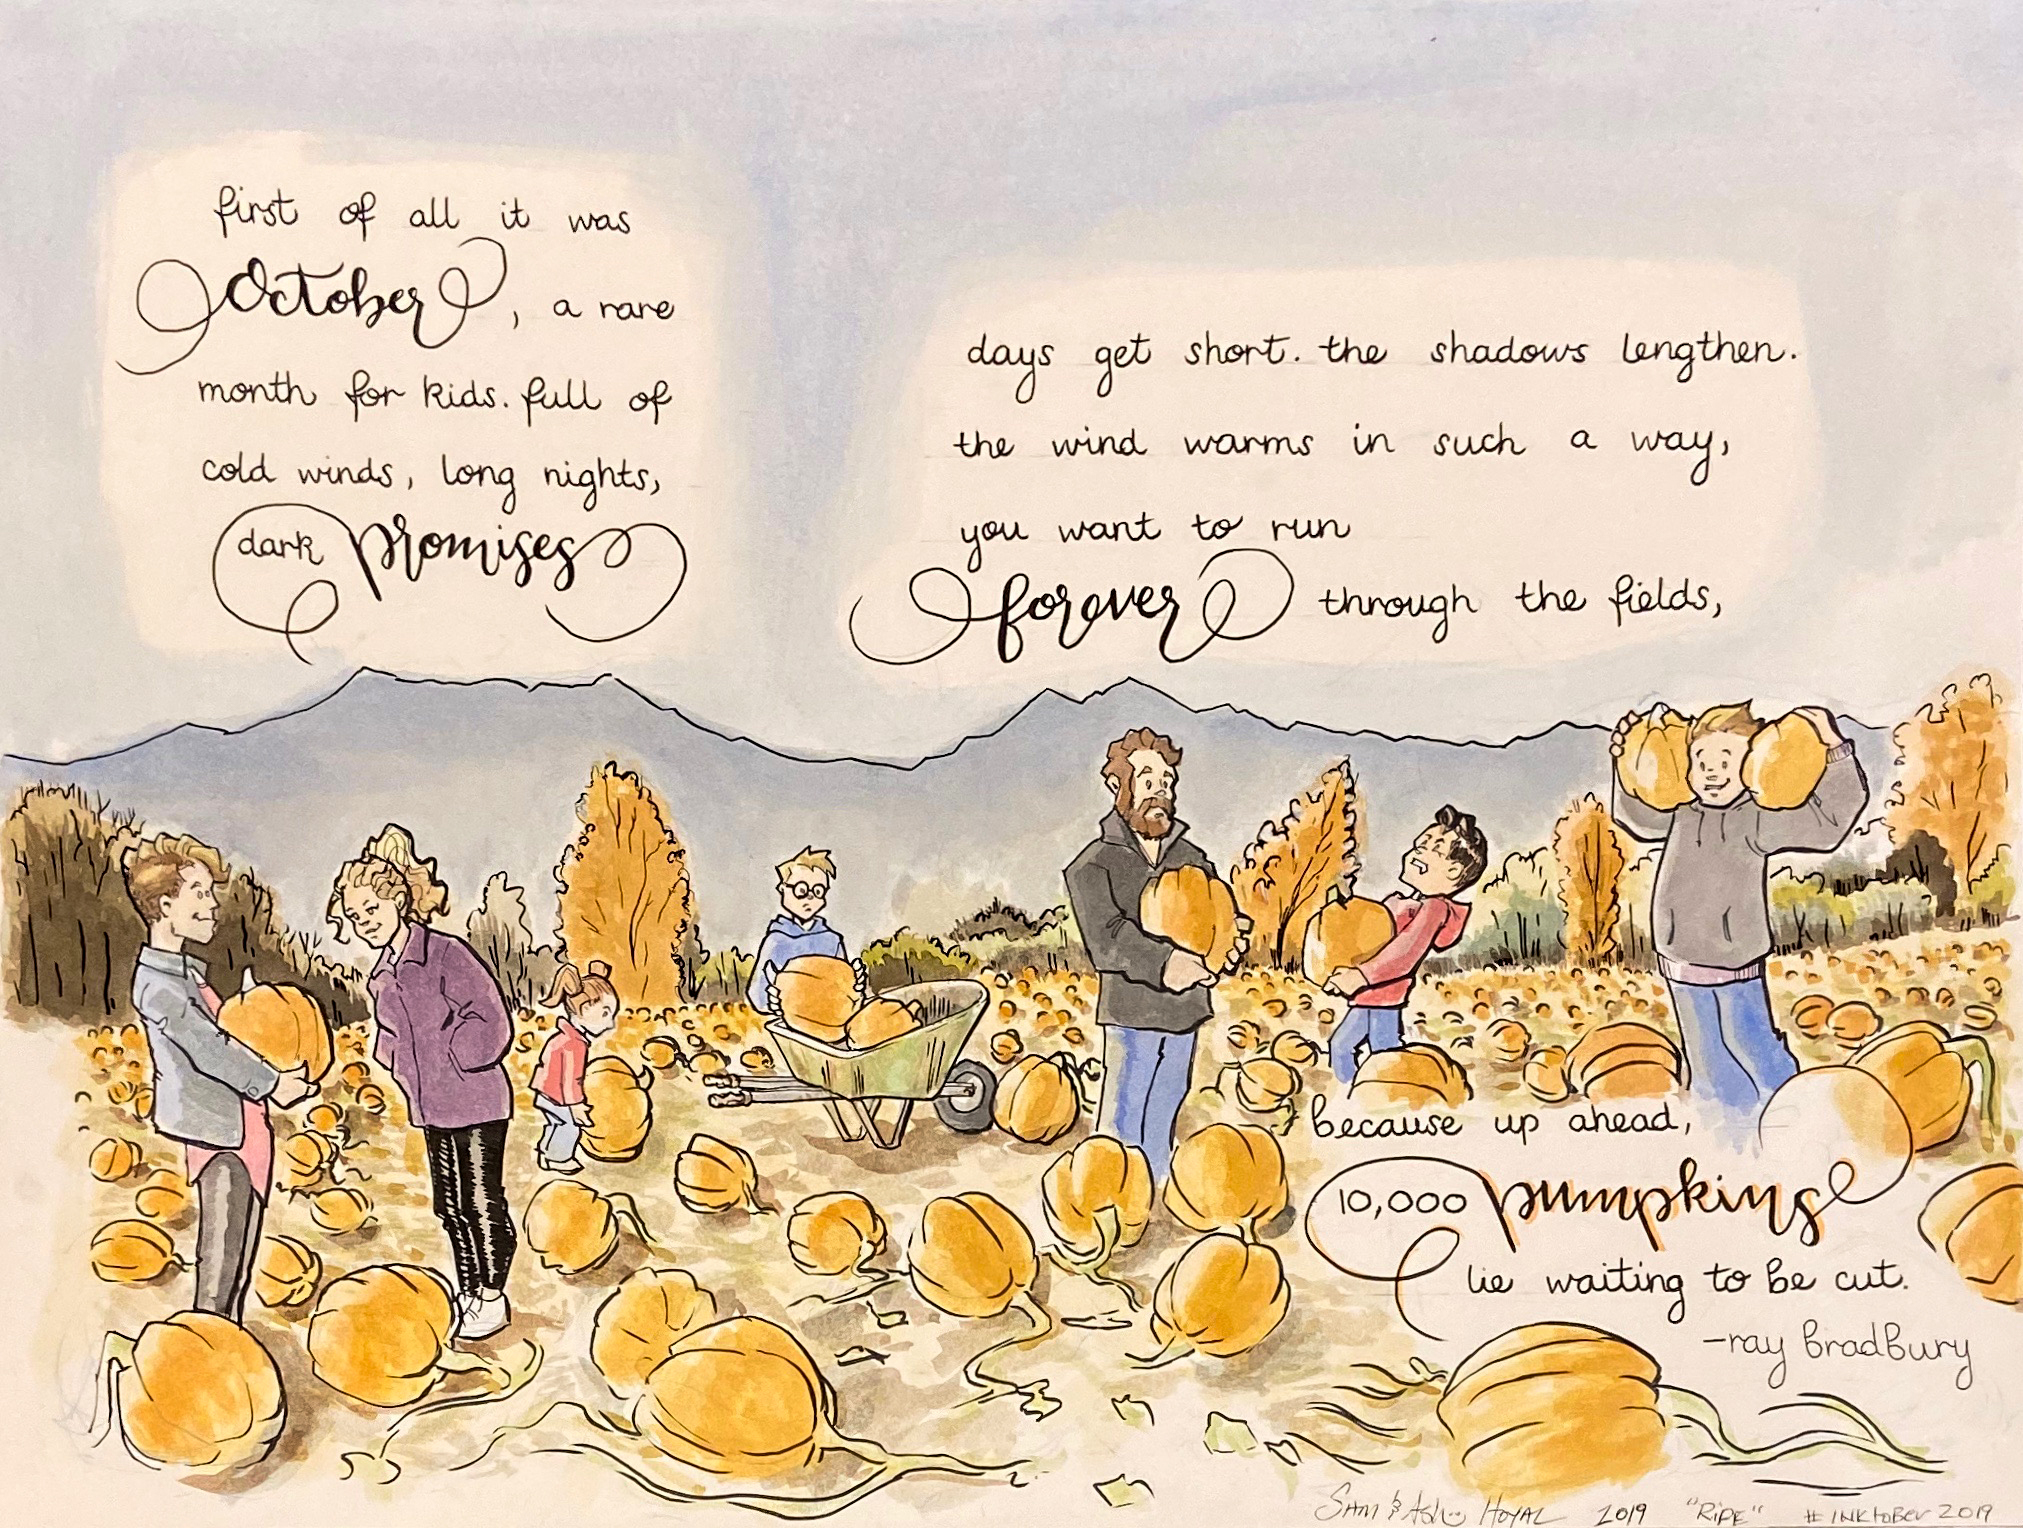 first of all it was
October, a rare
month for kids. full of
cold winds, long nights,
dark promises
days get short. the shadows lengthen.
the wind warms in such a way,
you want to run
forever through the fields,
because up ahead,
10,000 pumpkins
lie waiting to be cut.
-ray bradbury
Sam & Ash Hoyal 2019 "RiPE" #INKtobER 2019